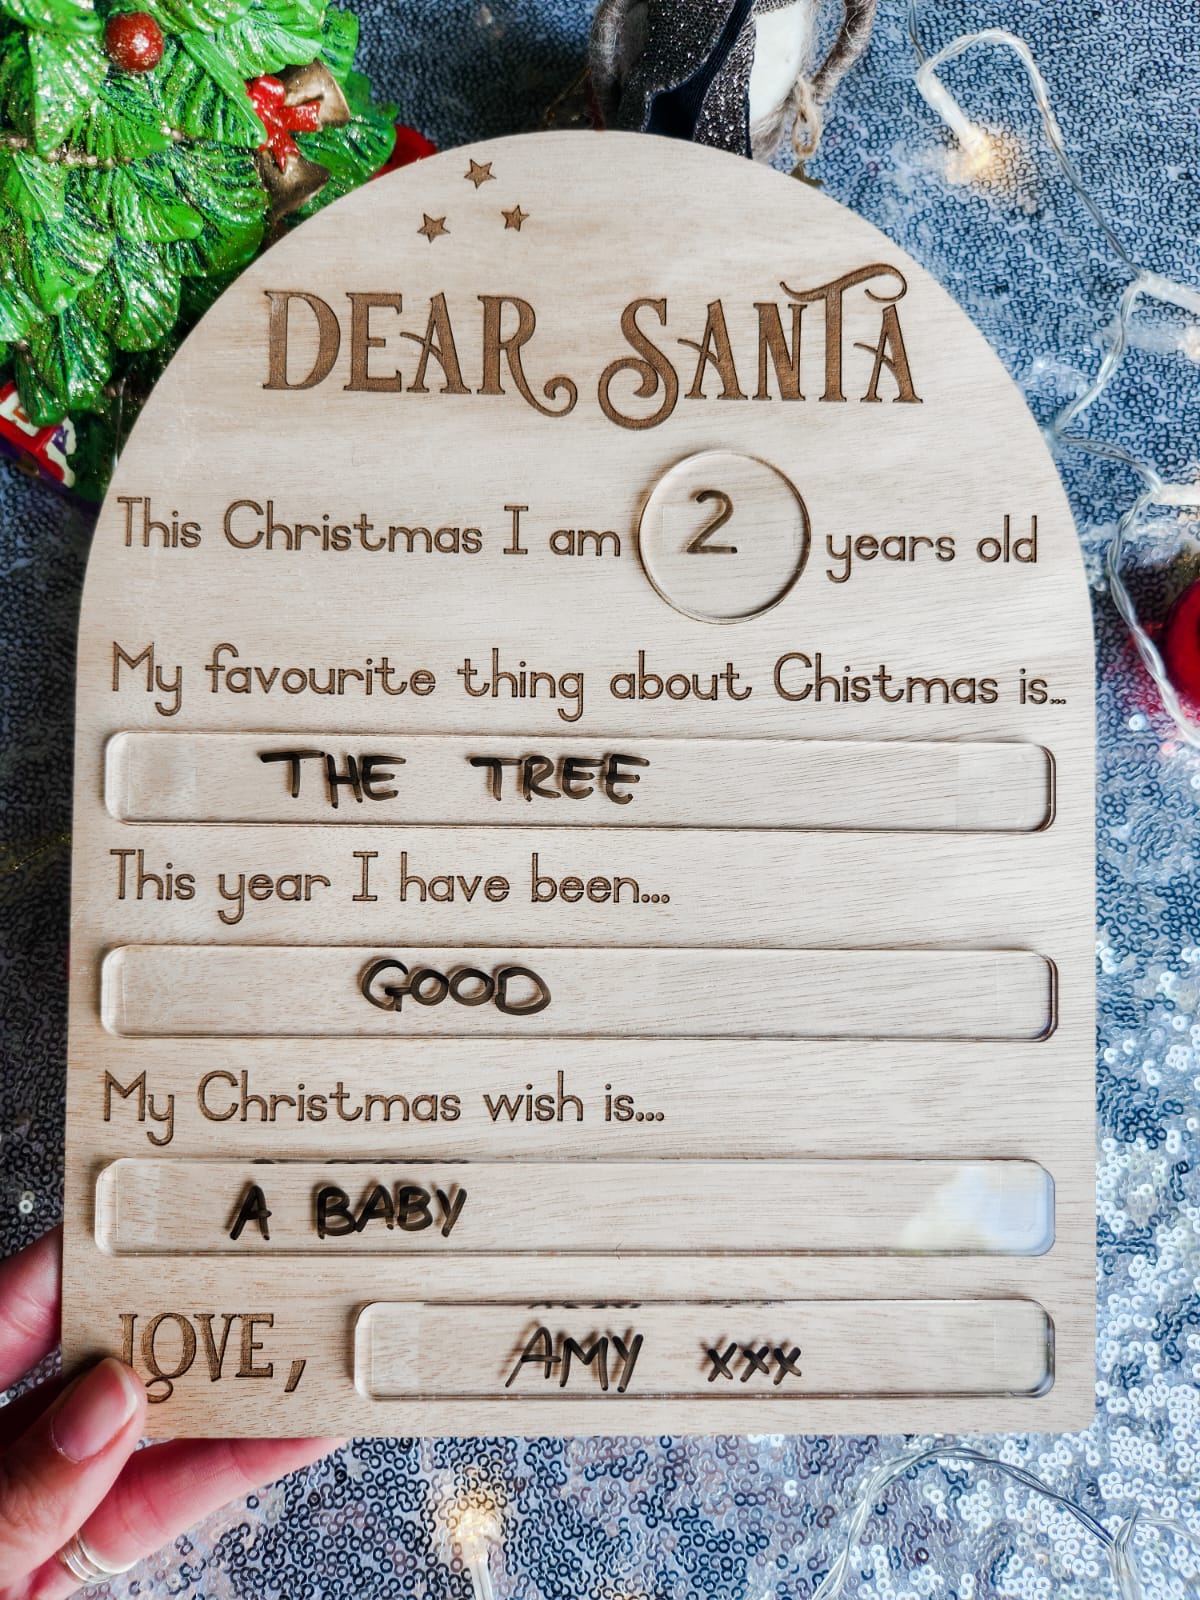 DEAR SANTA
This Christmas I am 2 years old
My favourite thing about Chistmas is...
THE TREE
This year I have been...
GOOD
My Christmas wish is...
A BABY
LOVE, AMY xxx